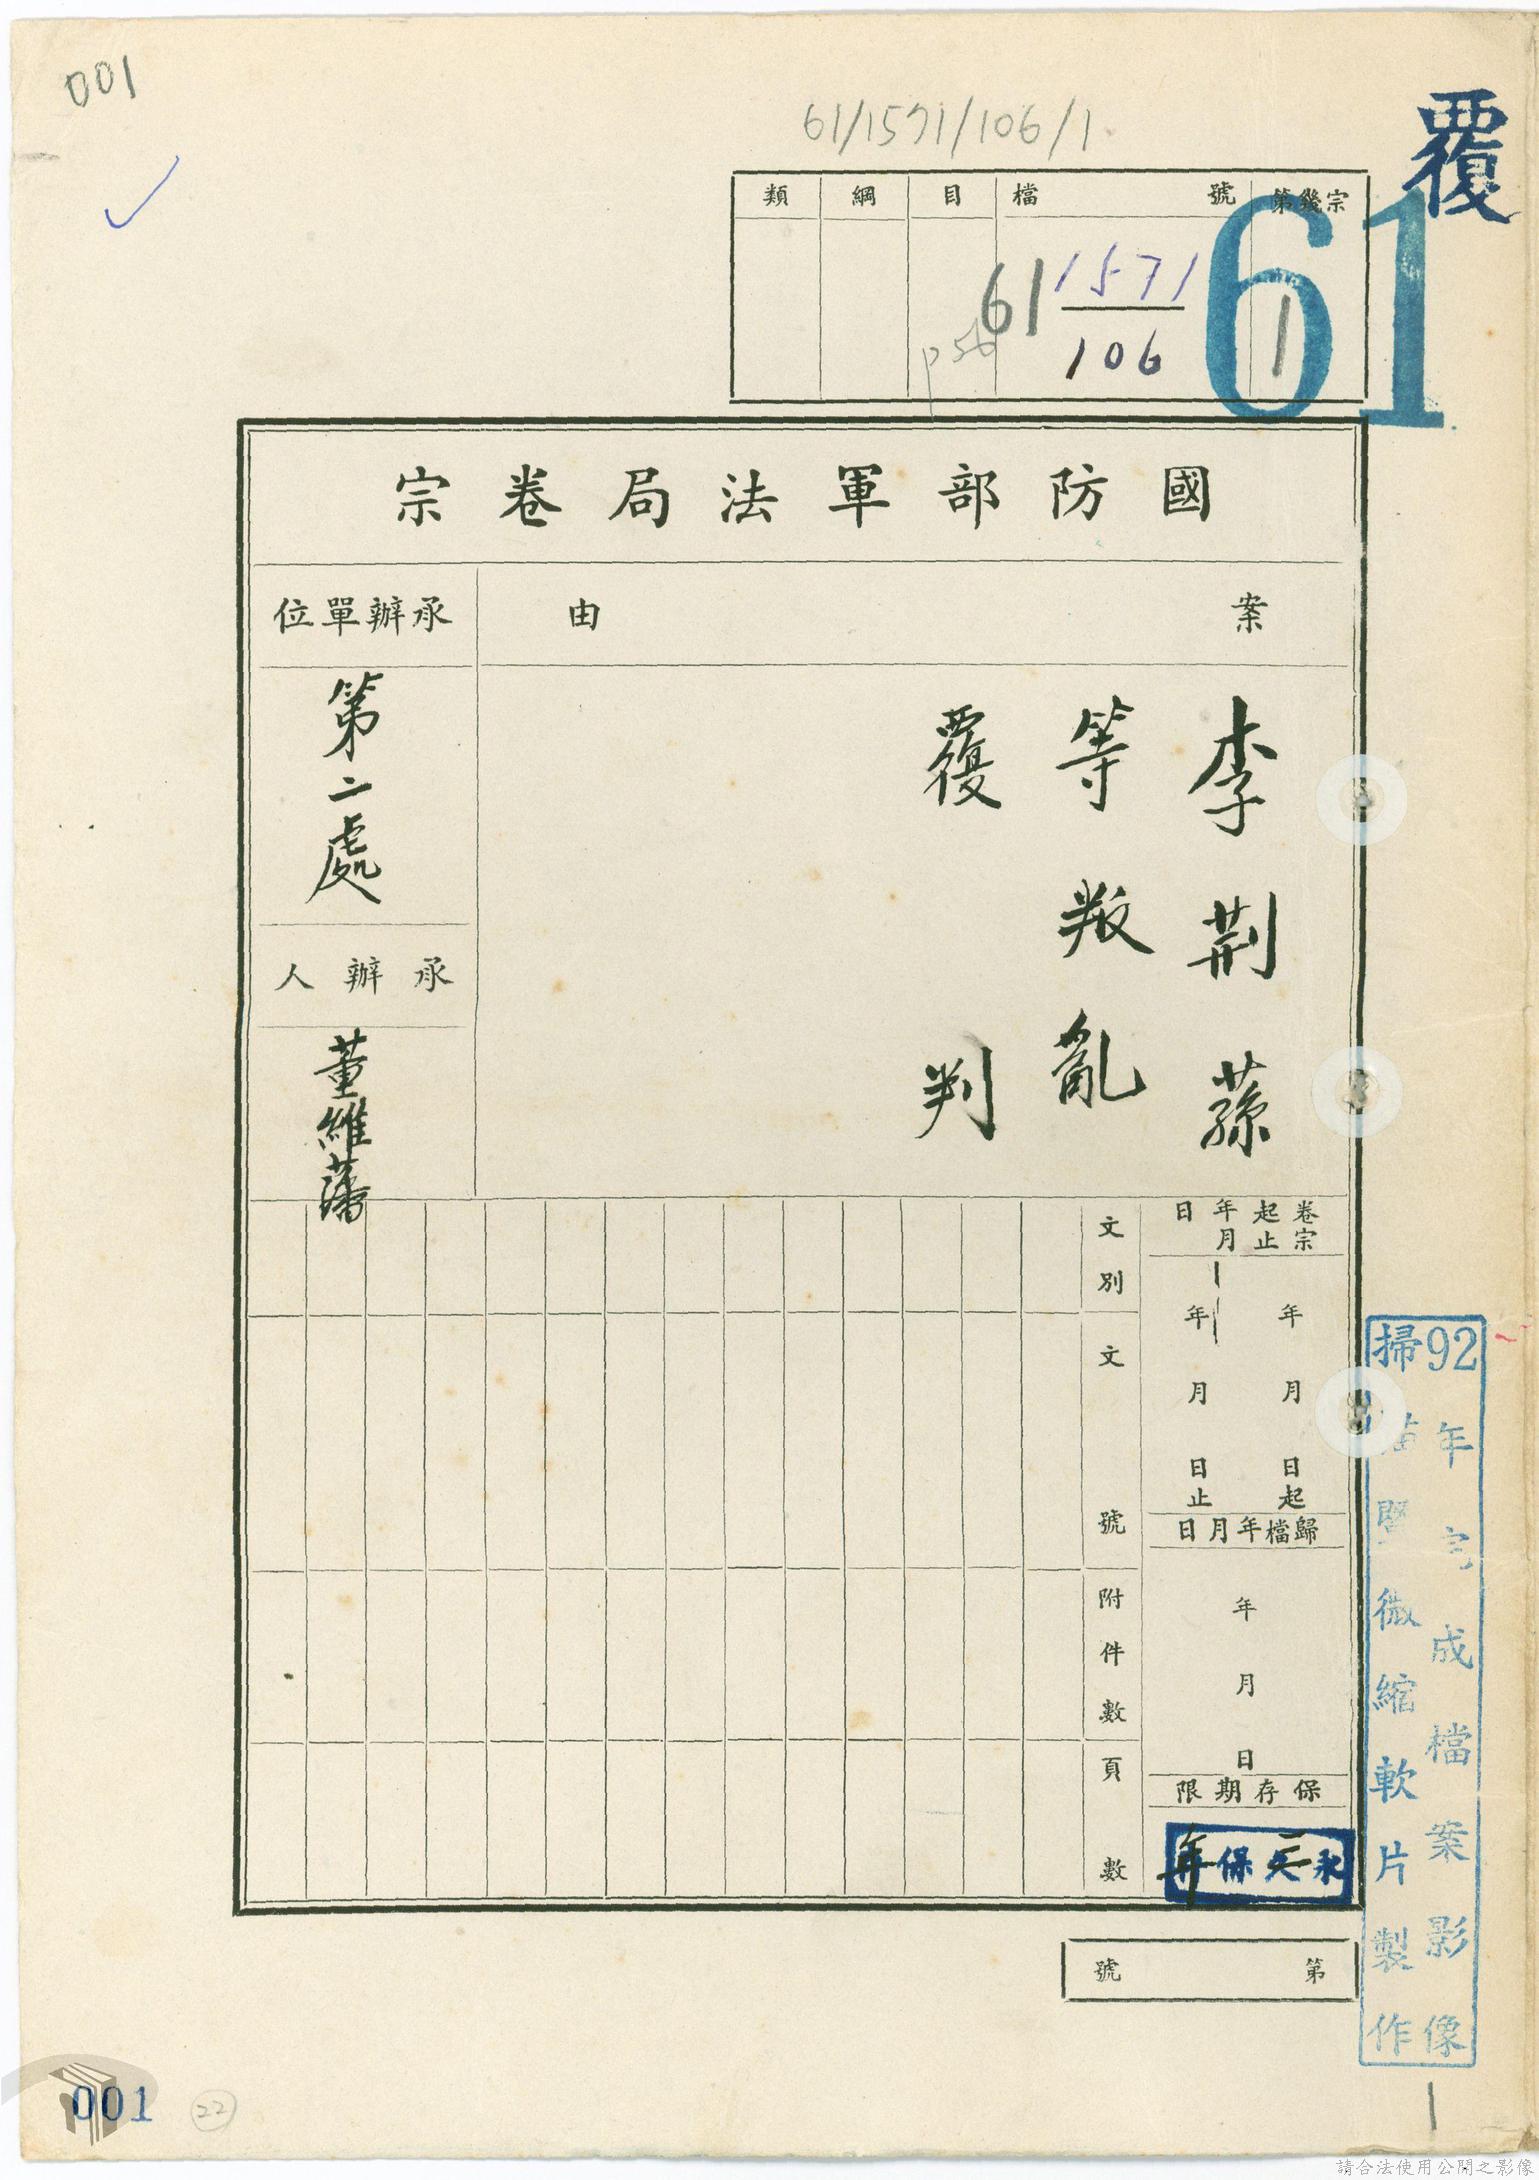 001
61/1571/106/1
覆
61
類 綱 目 檔號 第幾宗
61 1571
106
1
p56
國防部軍法局卷宗
案由
承辦單位
李荆蓀
等叛亂
覆判
第二處
承辦人
董維藩
卷宗起止年月日
年月日起
年月日止
歸檔年月日
年月日
保存期限
永久保
三年
文別
文號
附件數
頁數
第號
92年完成檔案影像
掃描暨微縮軟片製作
001
22
請合法使用公開之影像